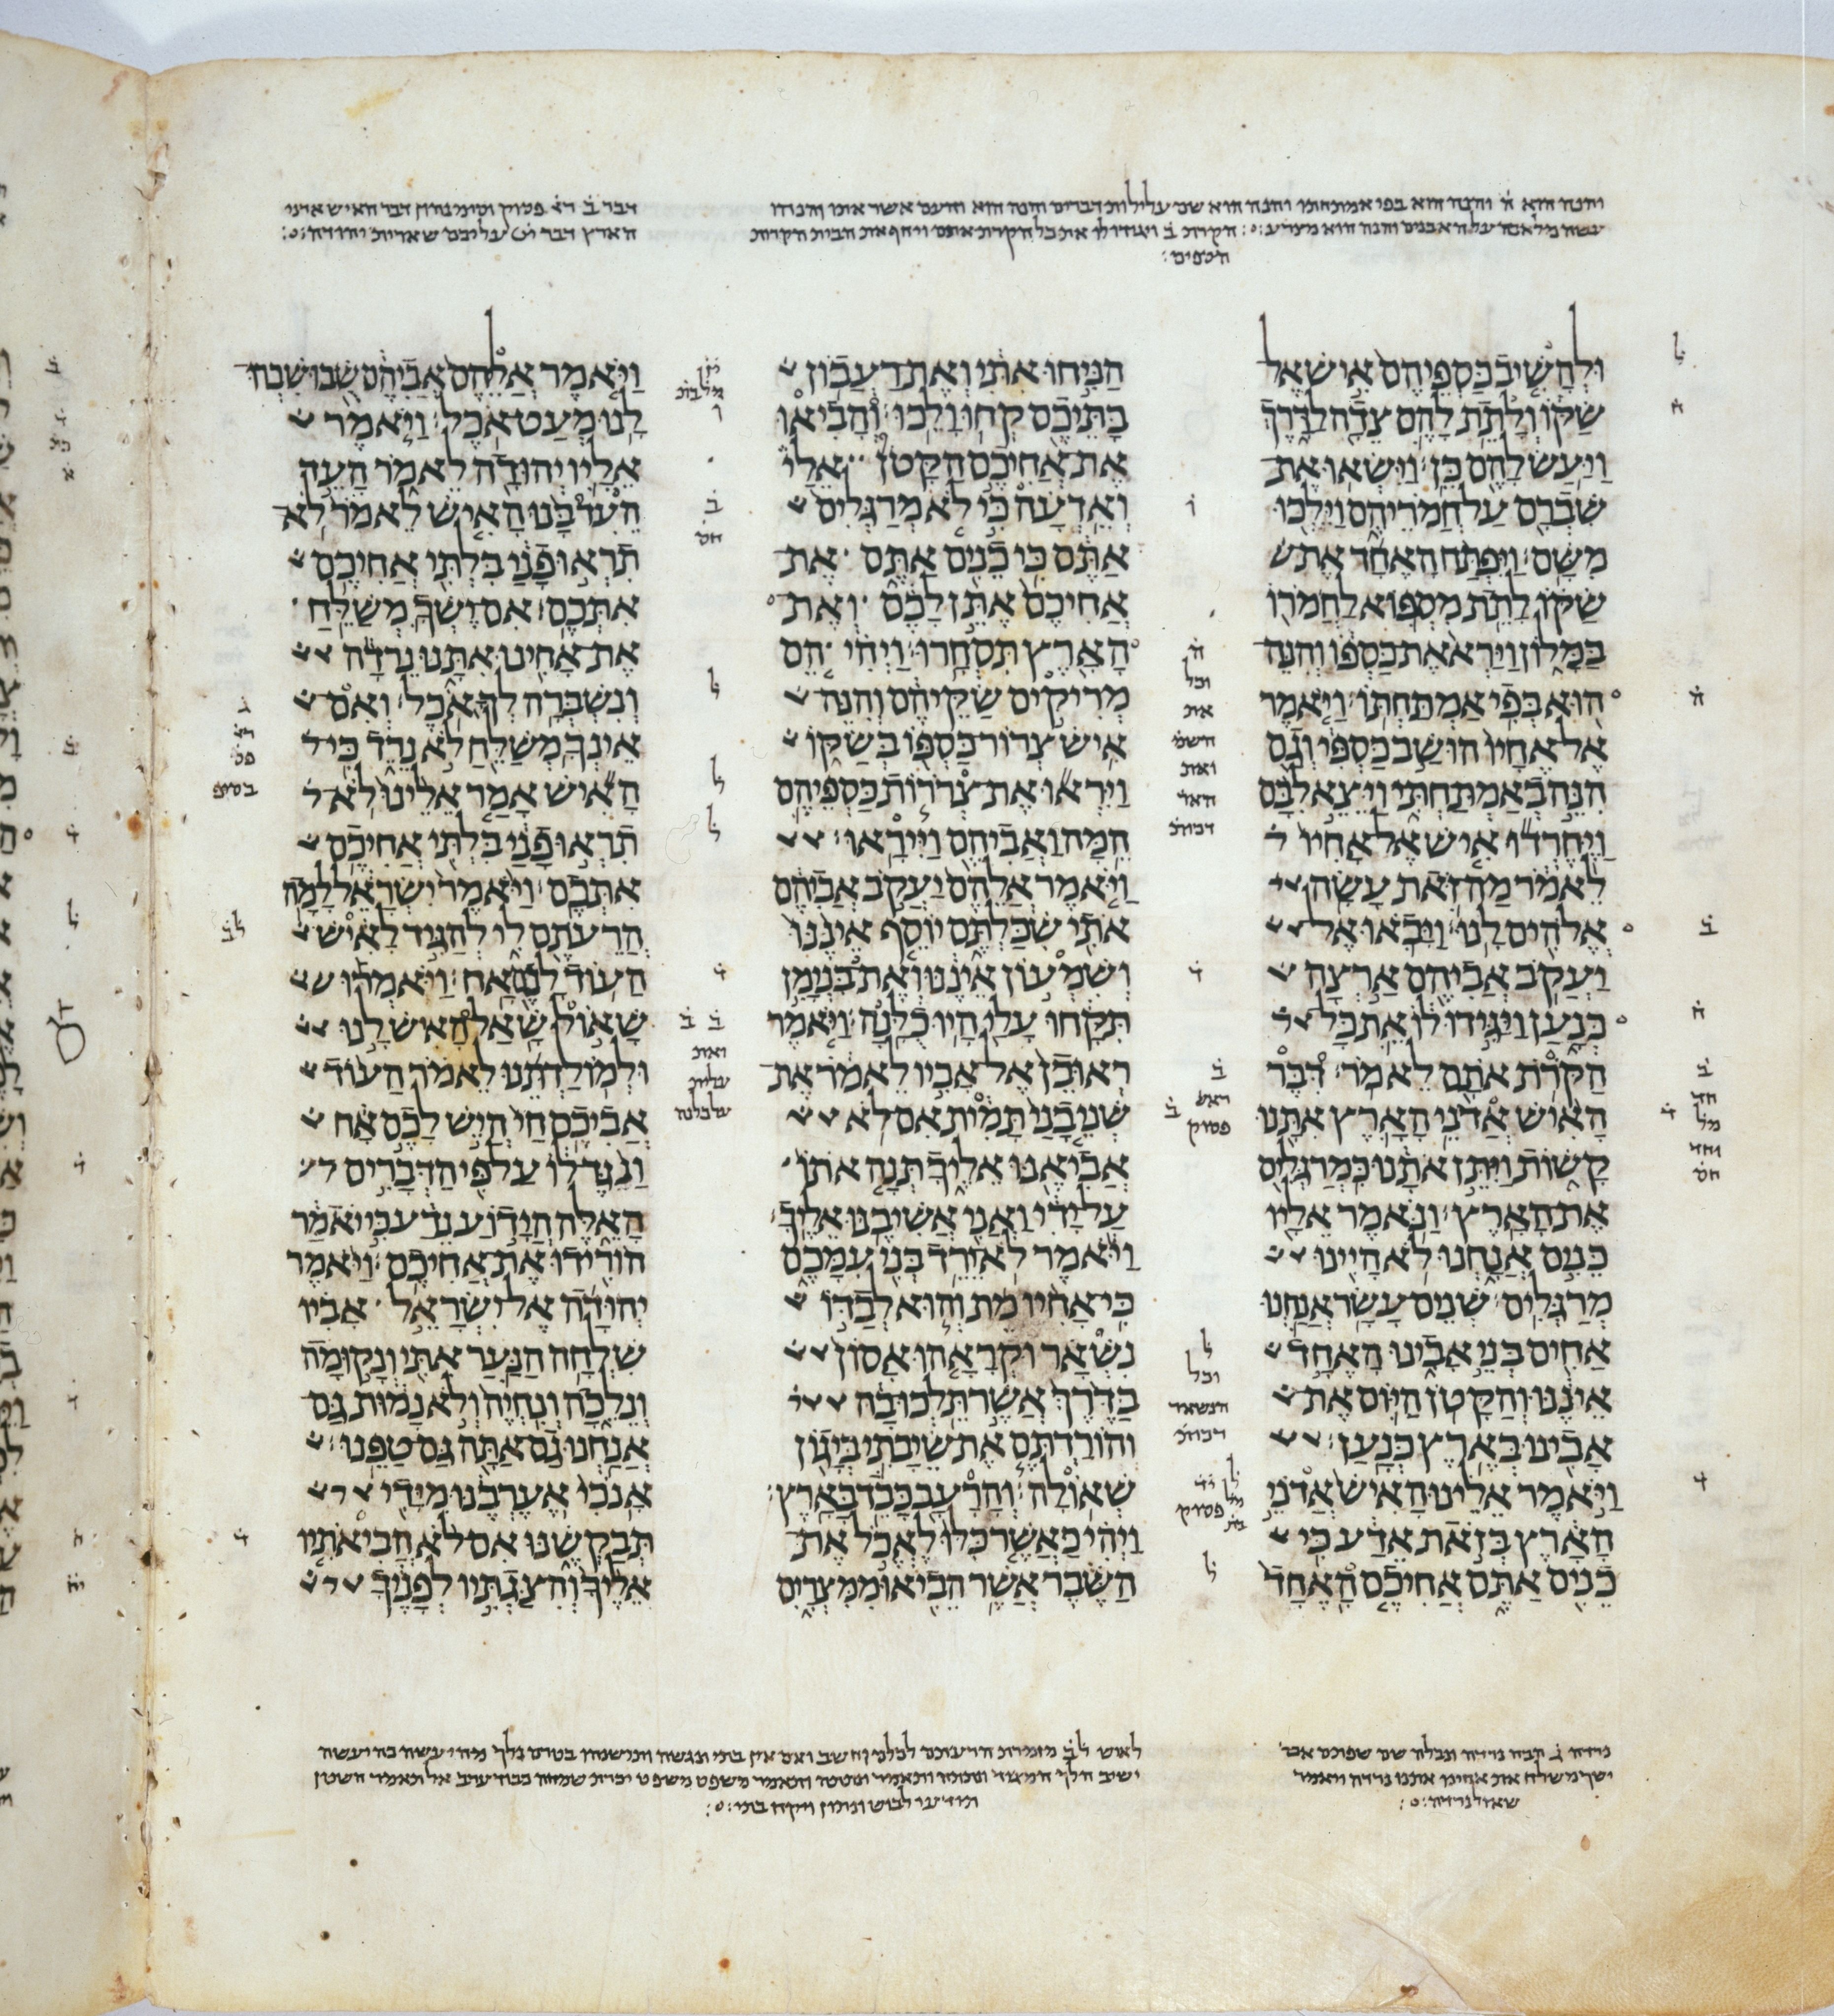 והנה הוא ה והנה הוא בפי אמתחתו והנה הוא שם עלילות דברים והנה הוא והעם אשר אתו והנהו
עשה מלאכה על האבנים והנה הוא מצרע הקרת ב ויגידו לו את כל הקרת אתם ויחף את הבית הקרות
הטפים
דבר ב רא פסוק וסימנהון דבר האיש אדני
הארץ דבר יי עליכם שארית יהודה
ולהשיב כספיהם איש אל
שקו ולתת להם צדה לדרך
ויעש להם כן וישאו את
שברם על חמריהם וילכו
משם ויפתח האחד את ש
שקו לתת מספוא לחמרו
במלון וירא את כספו והנה
הוא בפי אמתחתו ויאמר
אל אחיו הושב כספי וגם
הנה באמתחתי ויצא לבם
ויחרדו איש אל אחיו
לאמר מה זאת עשה
אלהים לנו ויבאו אל
יעקב אביהם ארצה
כנען ויגידו לו את כל
הקרת אתם לאמר דבר
האיש אדני הארץ אתנו
קשות ויתן אתנו כמרגלים
את הארץ ונאמר אליו
כנים אנחנו לא היינו
מרגלים שנים עשר אנחנו
אחים בני אבינו האחד
איננו והקטן היום את
אבינו בארץ כנען
ויאמר אלינו האיש אדני
הארץ בזאת אדע כי
כנים אתם אחיכם האחד
הניחו אתי ואת רעבון
בתיכם קחו ולכו והביאו
את אחיכם הקטן אלי
ואדעה כי לא מרגלים
אתם כי כנים אתם את
אחיכם אתן לכם ואת
הארץ תסחרו ויהי הם
מריקים שקיהם והנה
איש צרור כספו בשקו
ויראו את צררות כספיהם
המה ואביהם וייראו
ויאמר אלהם יעקב אביהם
אתי שכלתם יוסף איננו
ושמעון איננו ואת בנימן
תקחו עלי היו כלנה ויאמר
ראובן אל אביו לאמר את
שני בני תמית אם לא
אביאנו אליך תנה אתו
על ידי ואני אשיבנו אליך
ויאמר לא ירד בני עמכם
כי אחיו מת והוא לבדו
נשאר וקראהו אסון
בדרך אשר תלכו בה
והורדתם את שיבתי ביגון
שאולה והרעב כבד בארץ
ויהי כאשר כלו לאכל את
השבר אשר הביאו ממצרים
ויאמר אלהם אביהם שבו שברו
לנו מעט אכל ויאמר
אליו יהודה לאמר העד
העד בנו האיש לאמר לא
תראו פני בלתי אחיכם
אתכם אם ישך משלח
את אחינו אתנו נרדה
ונשברה לך אכל ואם
אינך משלח לא נרד כי
האיש אמר אלינו לא
תראו פני בלתי אחיכם
אתכם ויאמר ישראל למה
הרעתם לי להגיד לאיש
העוד לכם אח ויאמרו
שאול שאל האיש לנו
ולמולדתנו לאמר העוד
אביכם חי היש לכם אח
ונגד לו על פי הדברים
האלה הידוע נדע כי יאמר
הורידו את אחיכם ויאמר
יהודה אל ישראל אביו
שלחה הנער אתי ונקומה
ונלכה ונחיה ולא נמות גם
אנחנו גם אתה גם טפנו
אנכי אערבנו מידי
תבקשנו אם לא הביאתיו
אליך והצגתיו לפניך
נרדה ג הבה נרדה ונבלה שם שפתם אם
ישך משלח את אחינו אתנו נרדה ויאמר
שאול נרדה